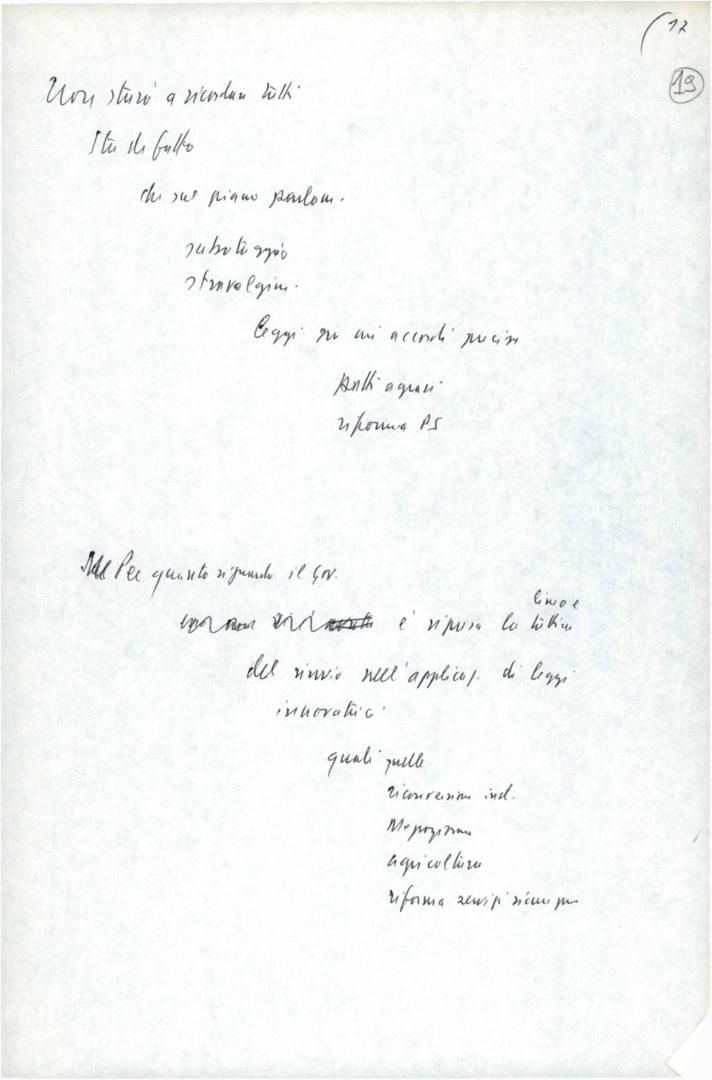 17
19
Non starò a ricordare tutti
Sta di fatto
che sul piano parlam.
sabotaggio
stravolgim.
leggi su cui accordi precisi
patti agrari
riforma PS
Per quanto riguarda il Gov.
linea e
è ripresa la
del rinvio nell'applicaz. di leggi
innovatrici
quali quelle
riconversione ind.
Mezzogiorno
agricoltura
riforma servizi